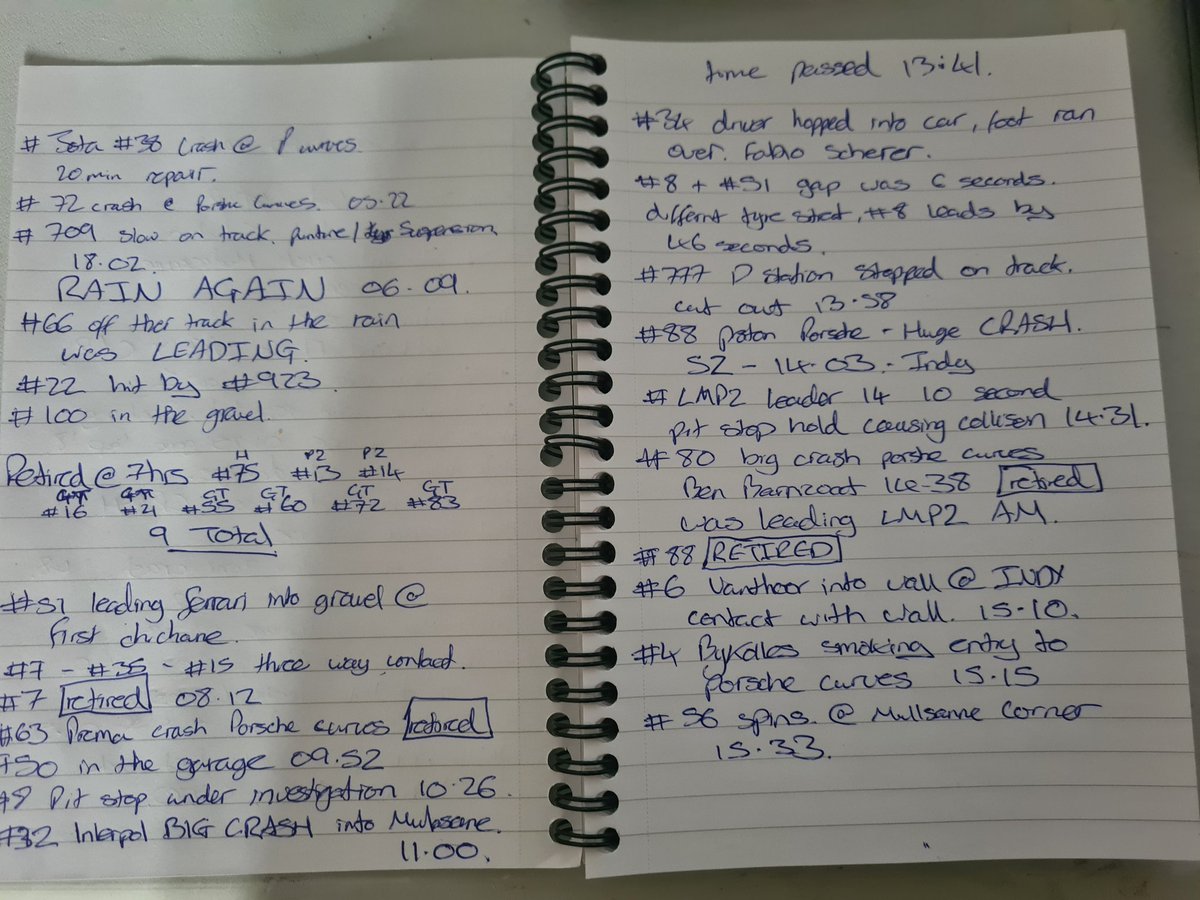 # Jota #38 crash @ P curves.
20 min repair.
# 72 crash @ Porshe Curves. 05.22
# 709 slow on track. punture / Suspension
18.02.
RAIN AGAIN 06.09.
#66 off ther track in the rain
was LEADING.
#22 hit by #923.
# 100 in the gravel.
H P2 P2
Retired @ 7hrs #75 #13 #14
GT GT GT GT GT GT
#16 #21 #55 #60 #72 #83
9 Total
#51 leading ferrari into gravel @
first chichane.
#7 - #35 - #15 three way contact.
#7 retired 08.12
#63 Prema crash Porsche curves retired
#50 in the garage 09.52
#8 Pit stop under investigation 10.26.
#32 Interpol BIG CRASH into Mulsanne.
11.00.
time passed 13:41.
#34 driver hopped into car, foot ran
over. Fabio Scherer.
#8 + #51 gap was 6 seconds.
differnt tyre strat, #8 leads by
46 seconds.
#777 D station stopped on track.
cut out 13.58
#88 proton Porsche - Huge CRASH.
S2 - 14.03. - Indy
# LMP2 leader 14 10 second
pit stop hold causing collison 14.31.
# 80 big crash porshe curves
Ben Barnicoat 14.38 retired
was leading LMP2 AM.
# 88 RETIRED
#6 Vanthoor into wall @ INDY
contact with wall. 15.10.
#4 Bykolles smoking entry to
porsche curves 15.15
# 56 spins @ Mullsanne Corner
15.33.